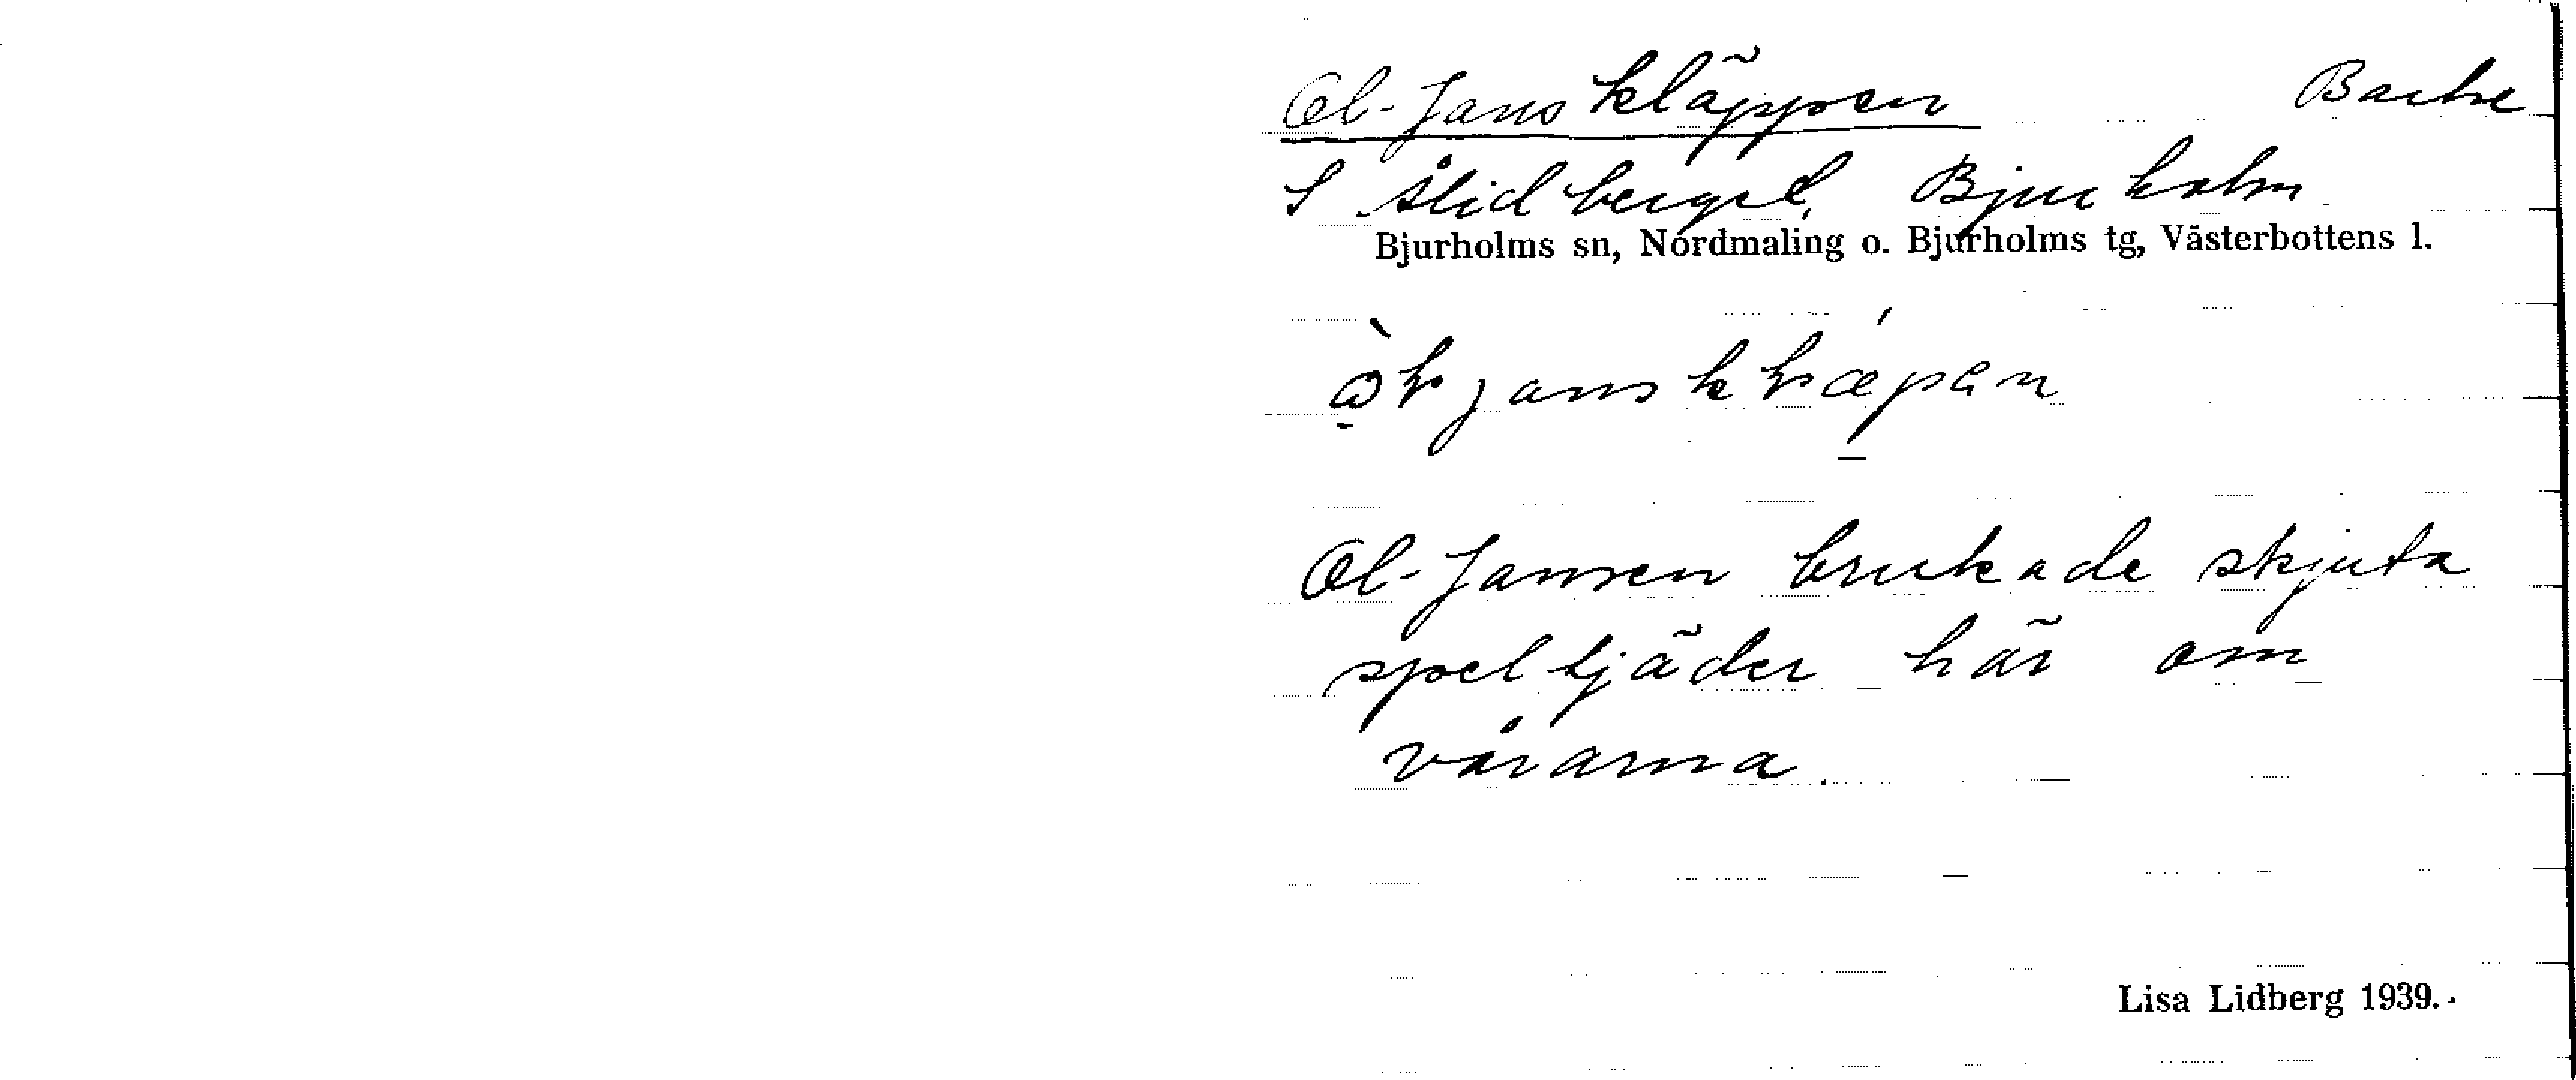 Ol-Jans kläppen Backe
S Slidberget, Bjurholm
Bjurholms sn, Nordmaling o. Bjurholms tg, Västerbottens l.
Ol-Jansen brukade skjuta
speltjäder här om
vårarna.
Lisa Lidberg 1939.